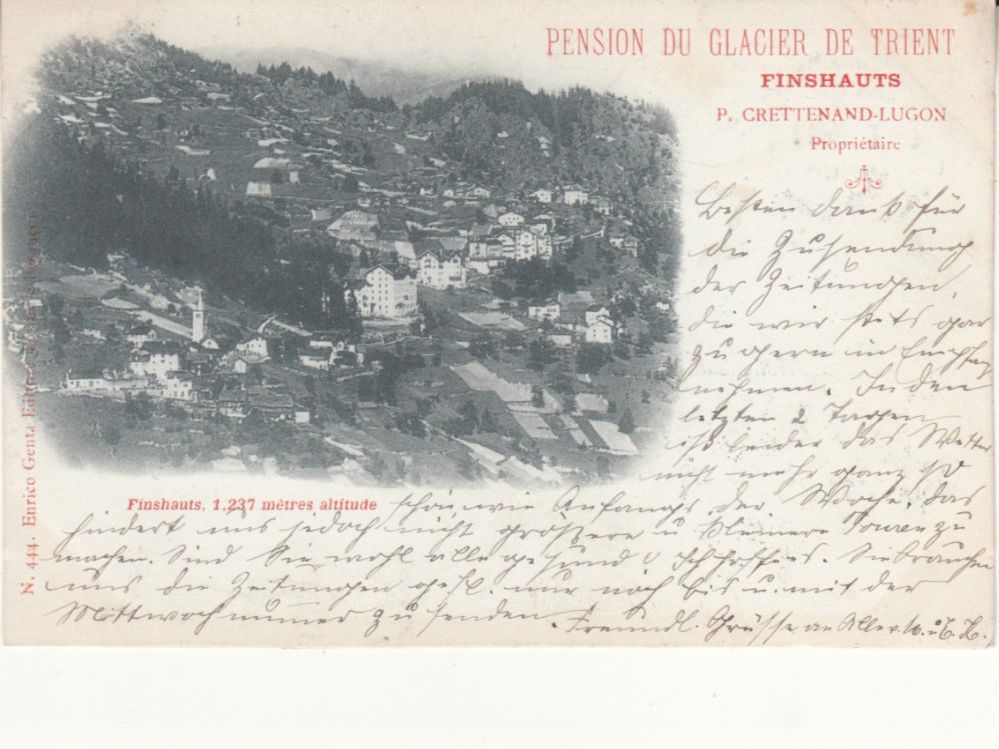 PENSION DU GLACIER DE TRIENT
FINSHAUTS
P. CRETTENAND-LUGON
Propriétaire
Besten Dank für
die Zusendung
der Zeitungen,
die wir stets gar
zu gern in Empfang
nehmen. In den
letzten 2 Tagen
ist leider das Wetter
nicht mehr ganz so
schön, wie Anfangs der Woche, das
hindert uns jedoch nicht grössere u kleinere Touren zu
machen. Sind Sie wohl alle gesund? Ich hoffe es. Sie brauchen
uns die Zeitungen gefl. nur noch bis u. mit der
Mittwochnummer zu senden.
Freundl. Grüsse an Alle v.
Finshauts, 1,237 mètres altitude
N. 444. Enrico Genta Editore